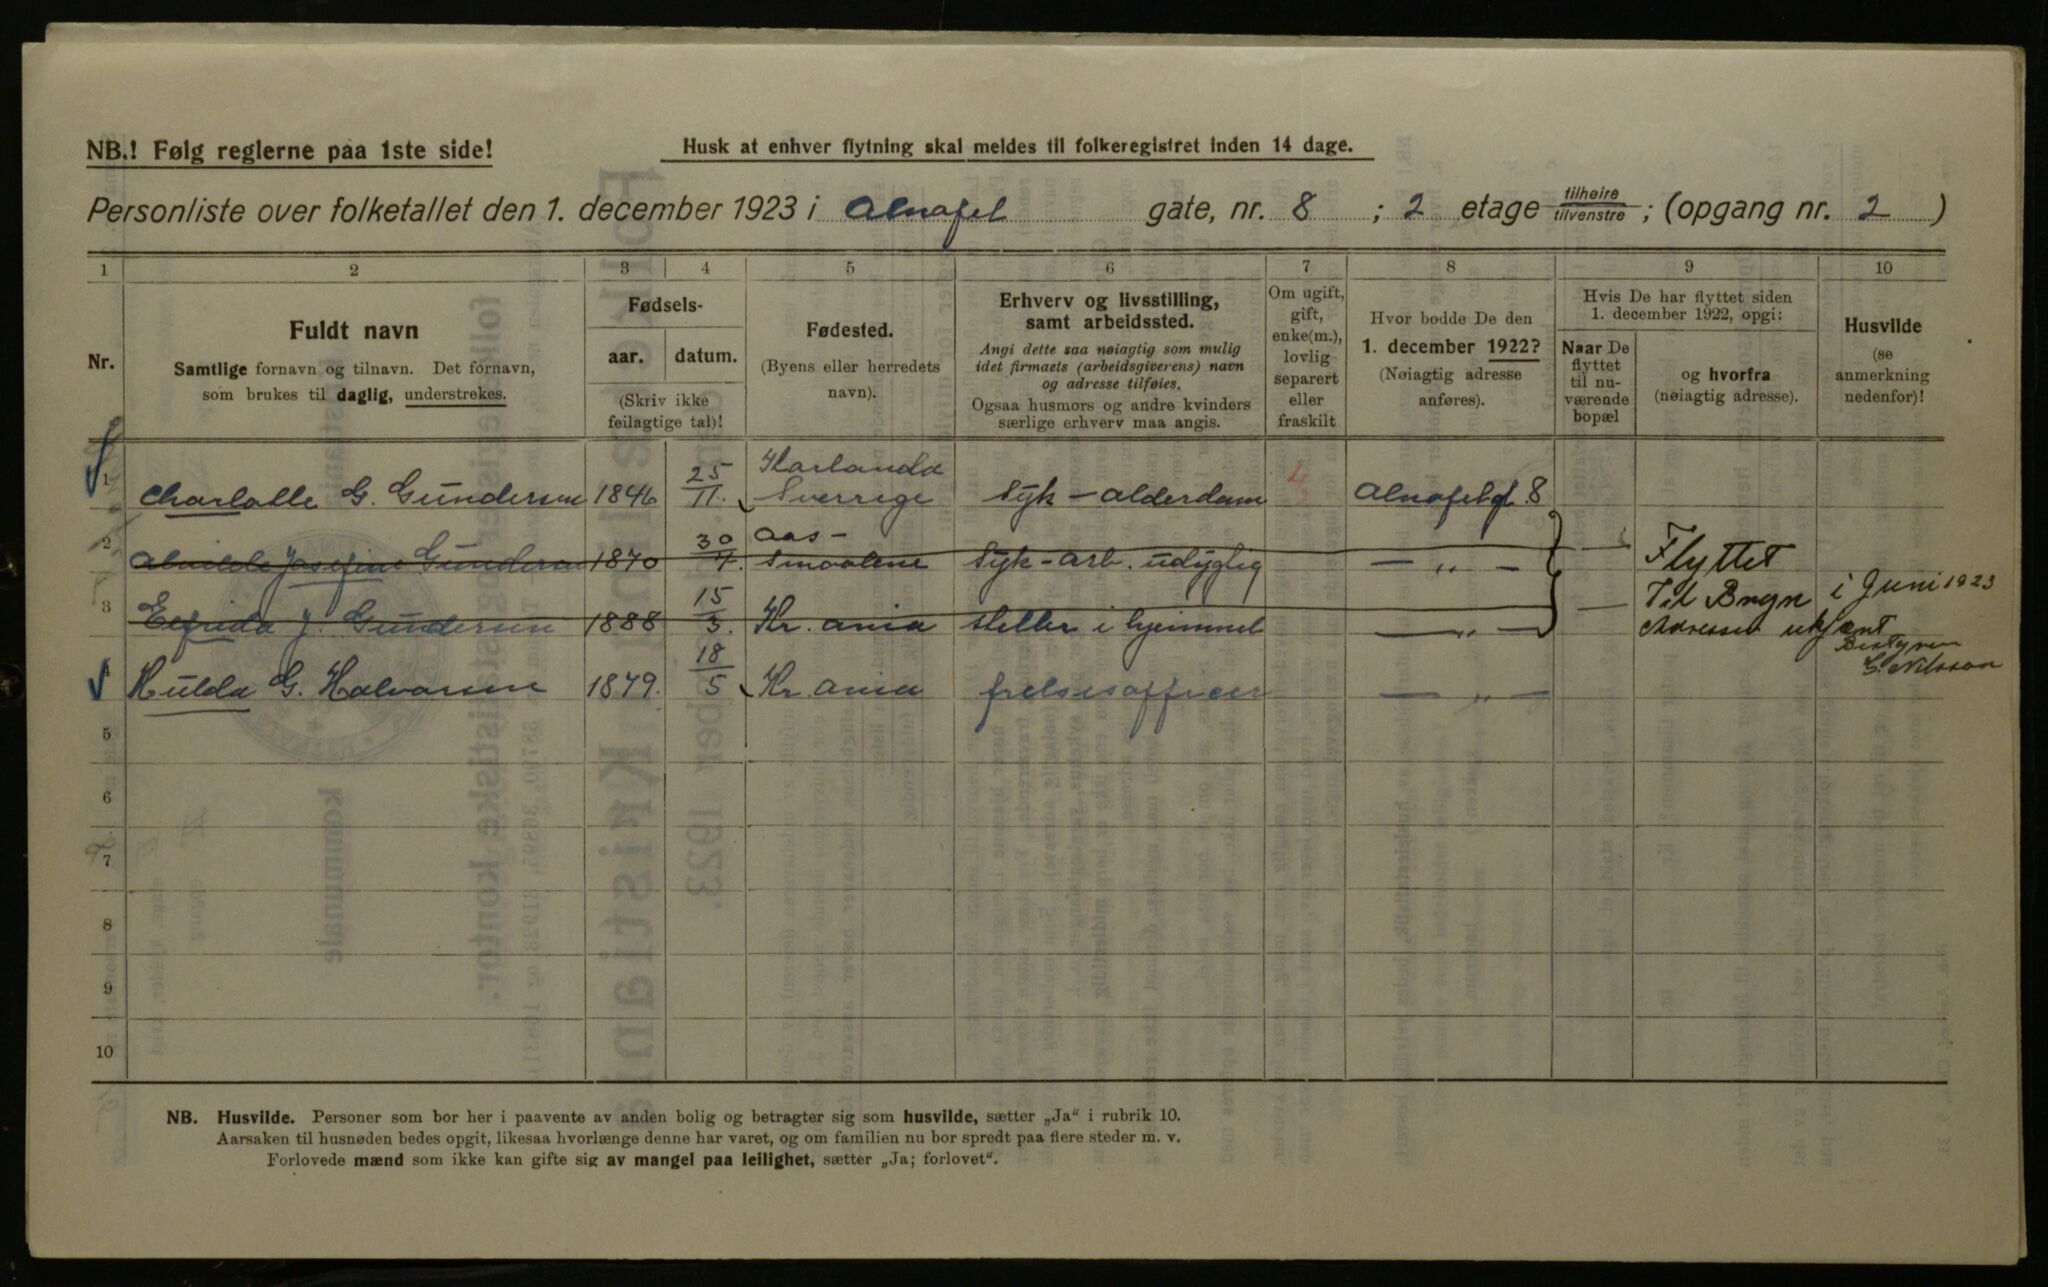 NB.! Følg reglerne paa 1ste side!
Husk at enhver flytning skal meldes til folkeregistret inden 14 dage.
Personliste over folketallet den 1. december 1923 i Alnafet gate, nr. 8 ; 2 etage tilhøire/tilvenstre ; (opgang nr. 2 )
1 2 3 4 5 6 7 8 9 10
Nr.
Fuldt navn
Samtlige fornavn og tilnavn. Det fornavn,
som brukes til daglig, understrekes.
Fødsels-
aar. datum.
(Skriv ikke
feilagtige tal)!
Fødested.
(Byens eller herredets
navn).
Erhverv og livsstilling,
samt arbeidssted.
Angi dette saa nøiagtig som mulig
idet firmaets (arbeidsgiverens) navn
og adresse tilføies.
Ogsaa husmors og andre kvinders
særlige erhverv maa angis.
Om ugift,
gift,
enke(m.),
lovlig
separert
eller
fraskilt
Hvor bodde De den
1. december 1922?
(Nøiagtig adresse
anføres).
Hvis De har flyttet siden
1. december 1922, opgi:
Naar De
flyttet
til nu-
værende
bopæl
og hvorfra
(nøiagtig adresse).
Husvilde
(se
anmerkning
nedenfor)!
1 Charlotte G. Gundersen 1846 25/11. Karlanda Sverrige Syk – alderdom Alnafetgt 8
2 Josefine Gundersen 1870 30/7. Aas – Smaalene Syk – arb. udyglig — „ — Flyttet
3 Elfrida J. Gundersen 1888 15/3. Kr. ania steller i hjemmet — „ — Til Bryn i Juni 1923
Adressen ukjent
Bestyrer
G. Nilsson
4 Hulda G. Halvorsen 1879. 18/5 Kr. ania frelsesofficer — „ —
5
6
7
8
9
10
NB. Husvilde. Personer som bor her i paavente av anden bolig og betragter sig som husvilde, sætter „Ja“ i rubrik 10.
Aarsaken til husnøden bedes opgit, likesaa hvorlænge denne har varet, og om familien nu bor spredt paa flere steder m. v.
Forlovede mænd som ikke kan gifte sig av mangel paa leilighet, sætter „Ja; forlovet“.